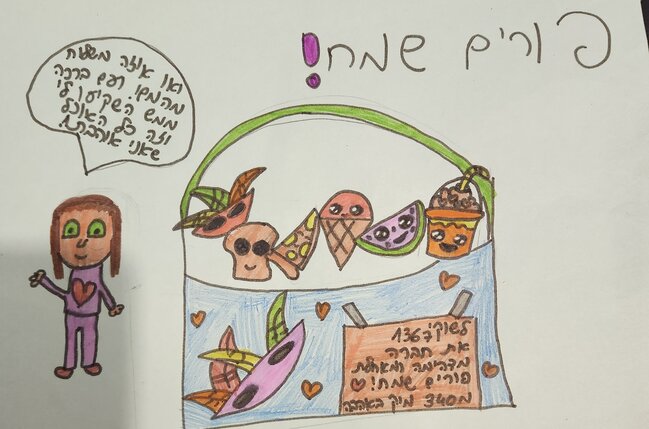 פורים שמח!
ואו איזה משלוח
מהמם! ועם ברכה
ממש השקיעו לי
וזה כל האוכל
שאני אוהבת!
את חברה
מדהימה ומאחלת
פורים שמח!
באהבה